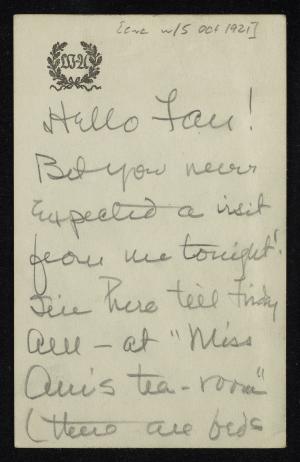 [enc w/5 Oct 1921]
Hello Fan!
Bet you never
expected a visit
from me tonight!
I'm here till Friday
am – at "Miss
Ann's tea-room"
(there are beds